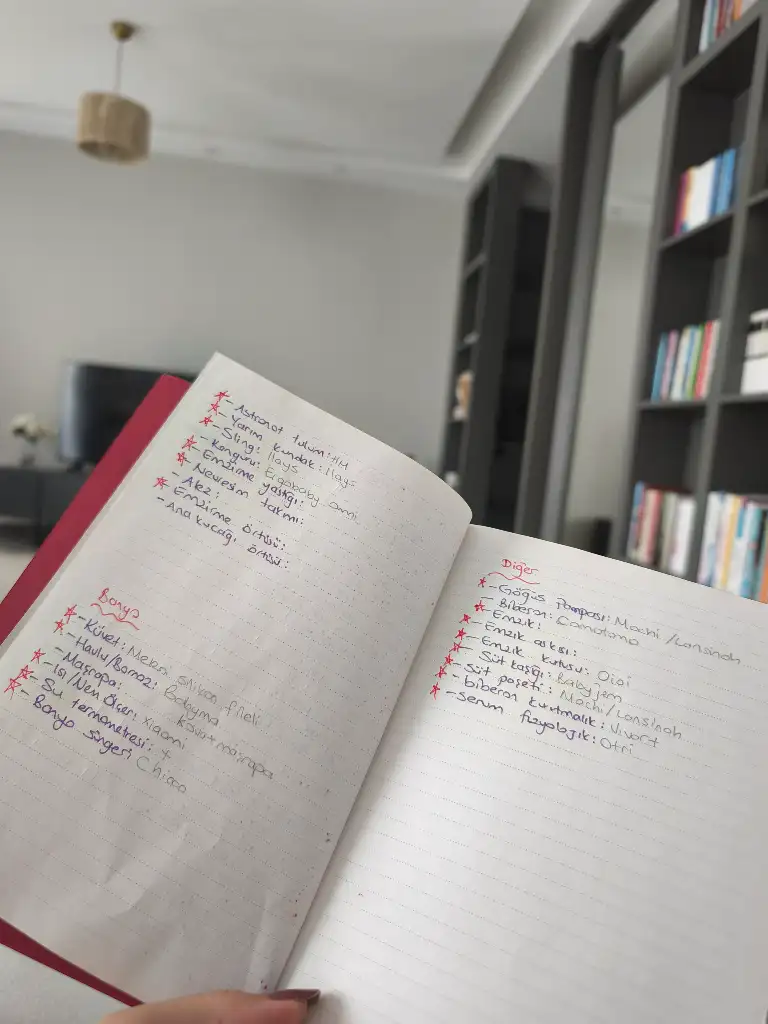 - Astronot tulum: HM
- Yarım kundak: Hays
- Sling: Hays
- Kanguru: Ergobaby omni
- Emzirme yastığı:
- Nevresim takımı:
- Alez:
- Emzirme örtüsü:
- Ana kucağı örtüsü:
Banyo
- Küvet: Meleni silikon fileli
- Havlu/Bornoz: Babyma
- Maşrapa: kovalı maşrapa
- Isı/Nem Ölçer: Xiaomi
- Su termometresi: +
- Banyo süngeri: Chicco
Diğer
- Göğüs Pompası: Mochi / Lansinoh
- Biberon: Comotomo
- Emzik:
- Emzik askısı:
- Emzik kutusu: Oioi
- Süt kaşığı: Babyjem
- Süt poşeti: Mochi/Lansinoh
- biberon kurutmalık: Vivart
- serum fizyolojik: Otri